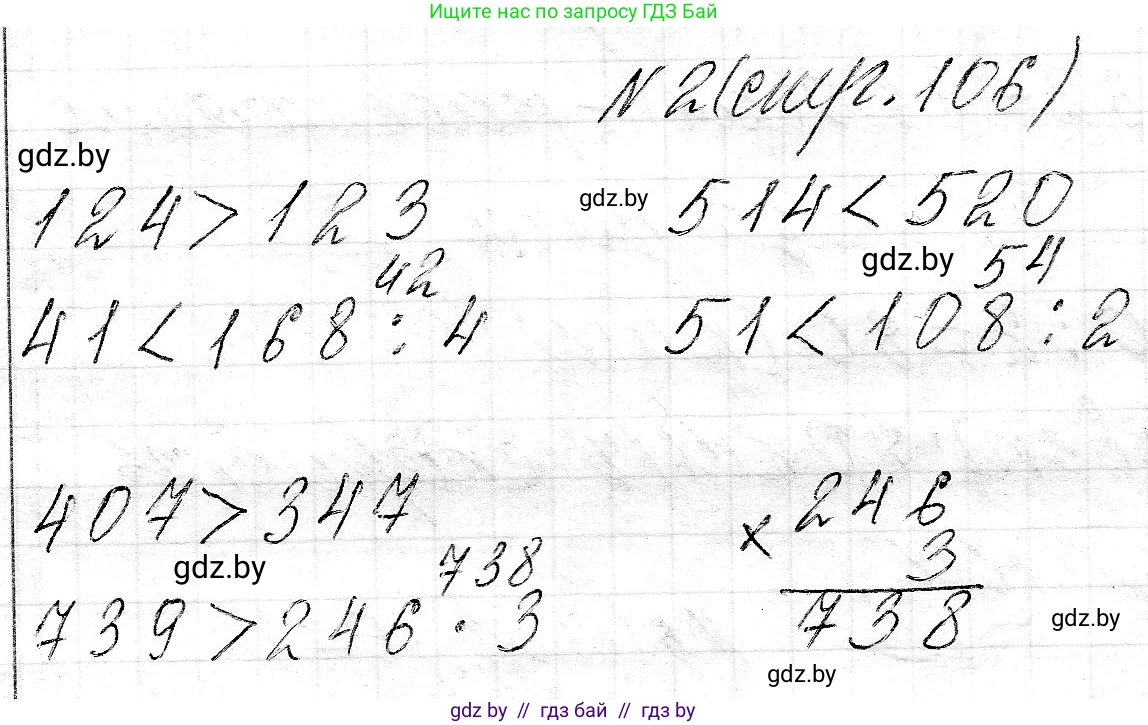 Ищите нас по запросу ГДЗ Бай
N 2 (стр. 106)
gdz.by
124 > 123
gdz.by
514 < 520
42
gdz.by
54
41 < 168 : 4
51 < 108 : 2
407 > 347
246
×
3
738
gdz.by
738
739 > 246 · 3
gdz.by
gdz.by
gdz by // гдз бай // гдз by